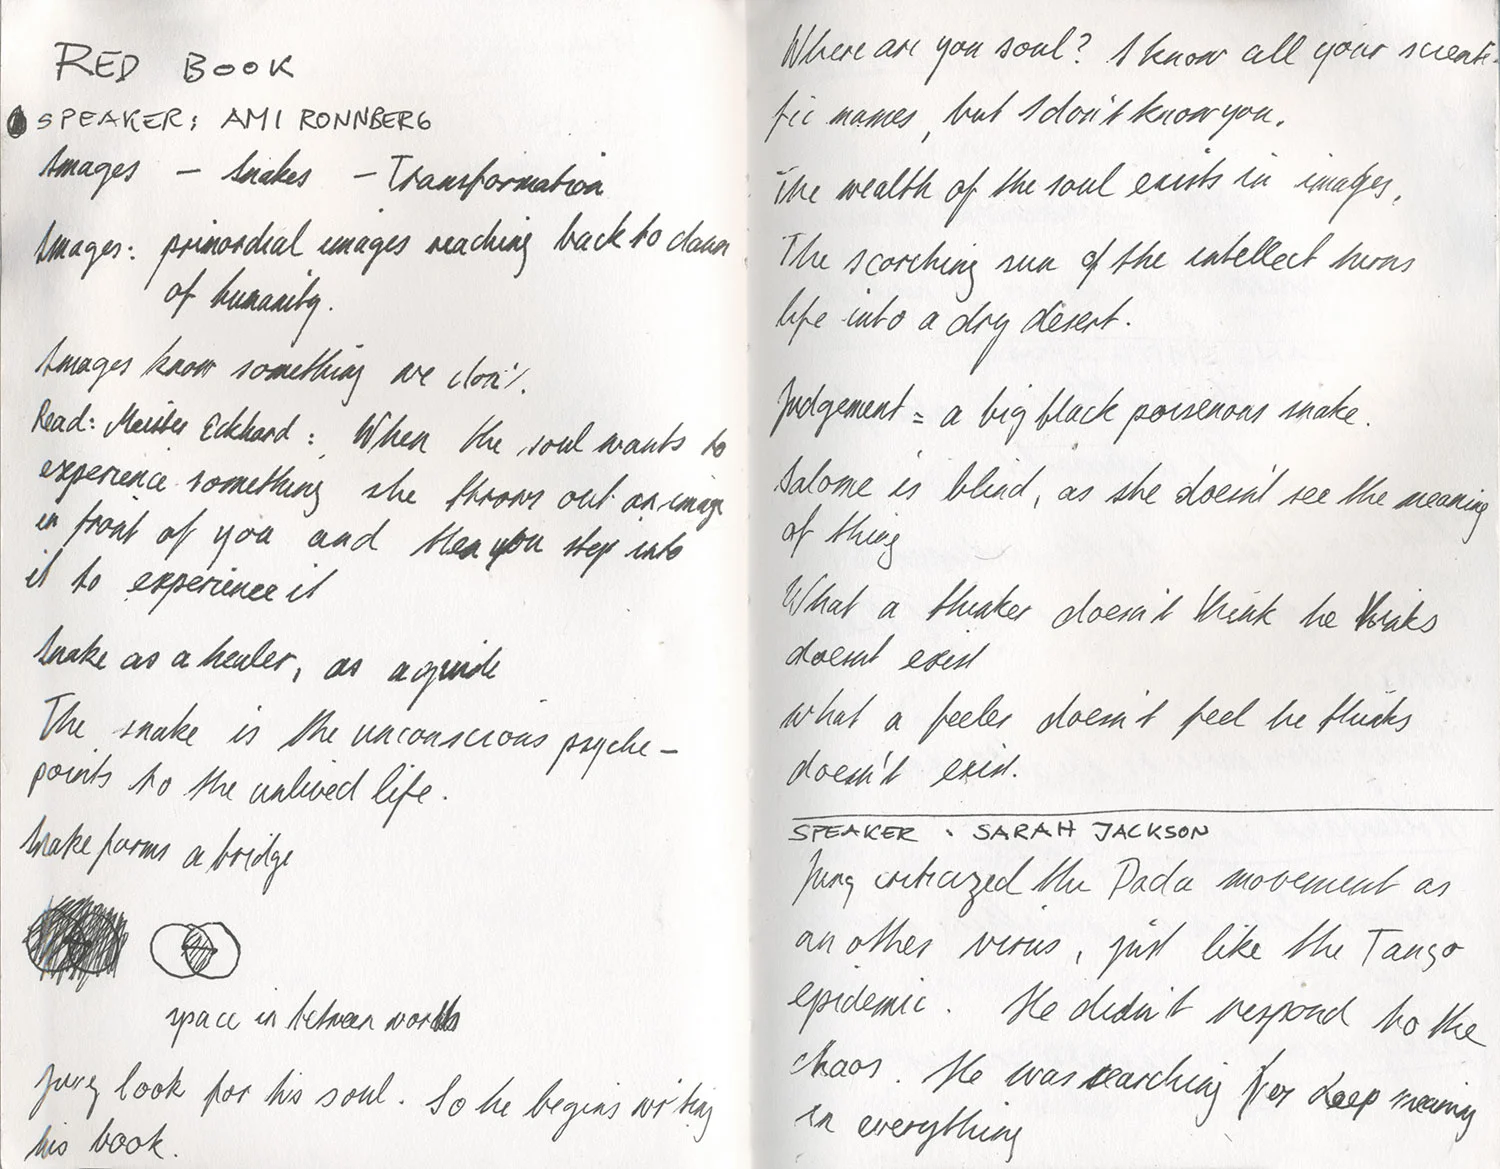 RED BOOK
SPEAKER: AMI RONNBERG
Images – Snakes – Transformation
Images: primordial images reaching back to dawn
of humanity.
Images know something we don't.
Read: Meister Eckhard: When the soul wants to
experience something she throws out an image
in front of you and then you step into
it to experience it
Snake as a healer, as a guide
The snake is the unconscious psyche –
points to the unlived life.
Snake forms a bridge
space in between worlds
Jung look for his soul. So he begins writing
his book.
Where are you soul? I know all your scienti-
fic names, but I don't know you.
The wealth of the soul exists in images.
The scorching sun of the intellect turns
life into a dry desert.
Judgement = a big black poisenous snake.
Salome is blind, as she doesn't see the meaning
of thing
What a thinker doesn't think he thinks
doesnt exist
what a feeler doesn't feel he thinks
doesn't exist.
SPEAKER · SARAH JACKSON
Jung criticized the Dada movement as
an other virus, just like the Tango
epidemic. He didn't respond to the
chaos. He was searching for deep meaning
in everything